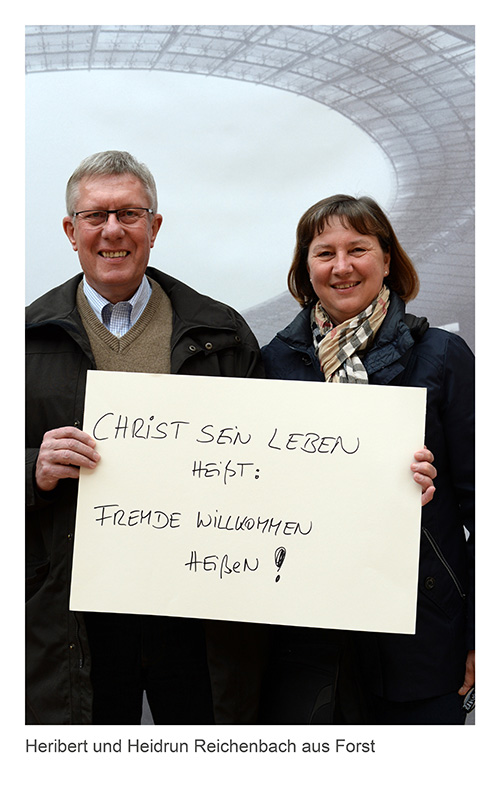 CHRIST SEIN LEBEN
HEIßT:
FREMDE WILLKOMMEN
HEIßEN!
Heribert und Heidrun Reichenbach aus Forst